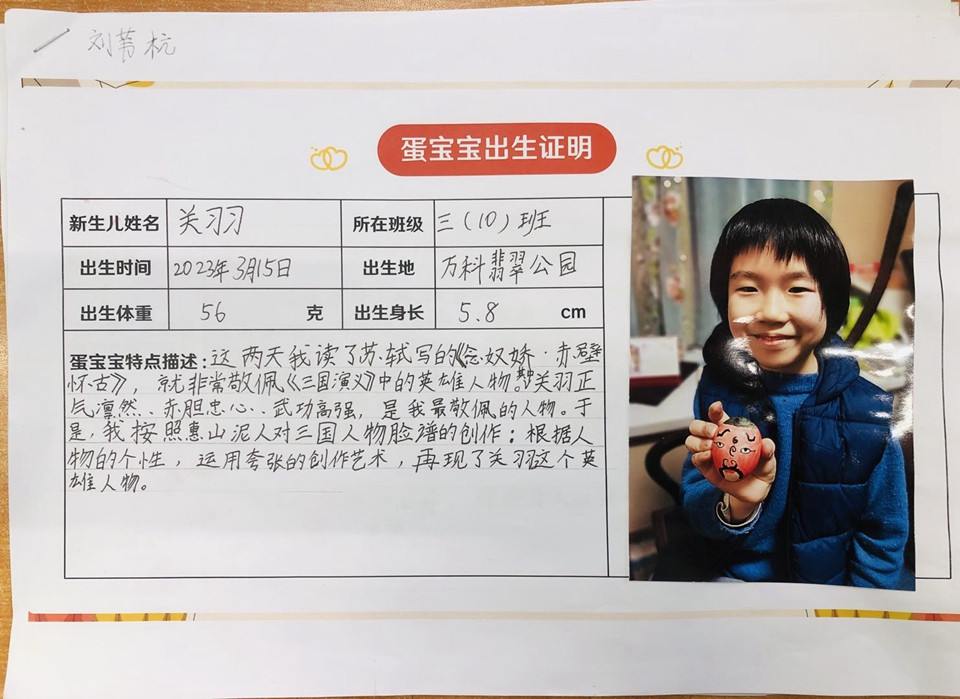 刘苇杭
蛋宝宝出生证明
新生儿姓名 关羽 所在班级 三(10)班
出生时间 2023年3月15日 出生地 万科翡翠公园
出生体重 56 克 出生身长 5.8 cm
蛋宝宝特点描述:这两天我读了苏轼写的《念奴娇·赤壁
怀古》,就非常敬佩《三国演义》中的英雄人物。其中关羽正
气凛然、赤胆忠心、武功高强,是我最敬佩的人物。于
是,我按照惠山泥人对三国人物脸谱的创作;根据人
物的个性,运用夸张的创作艺术,再现了关羽这个英
雄人物。